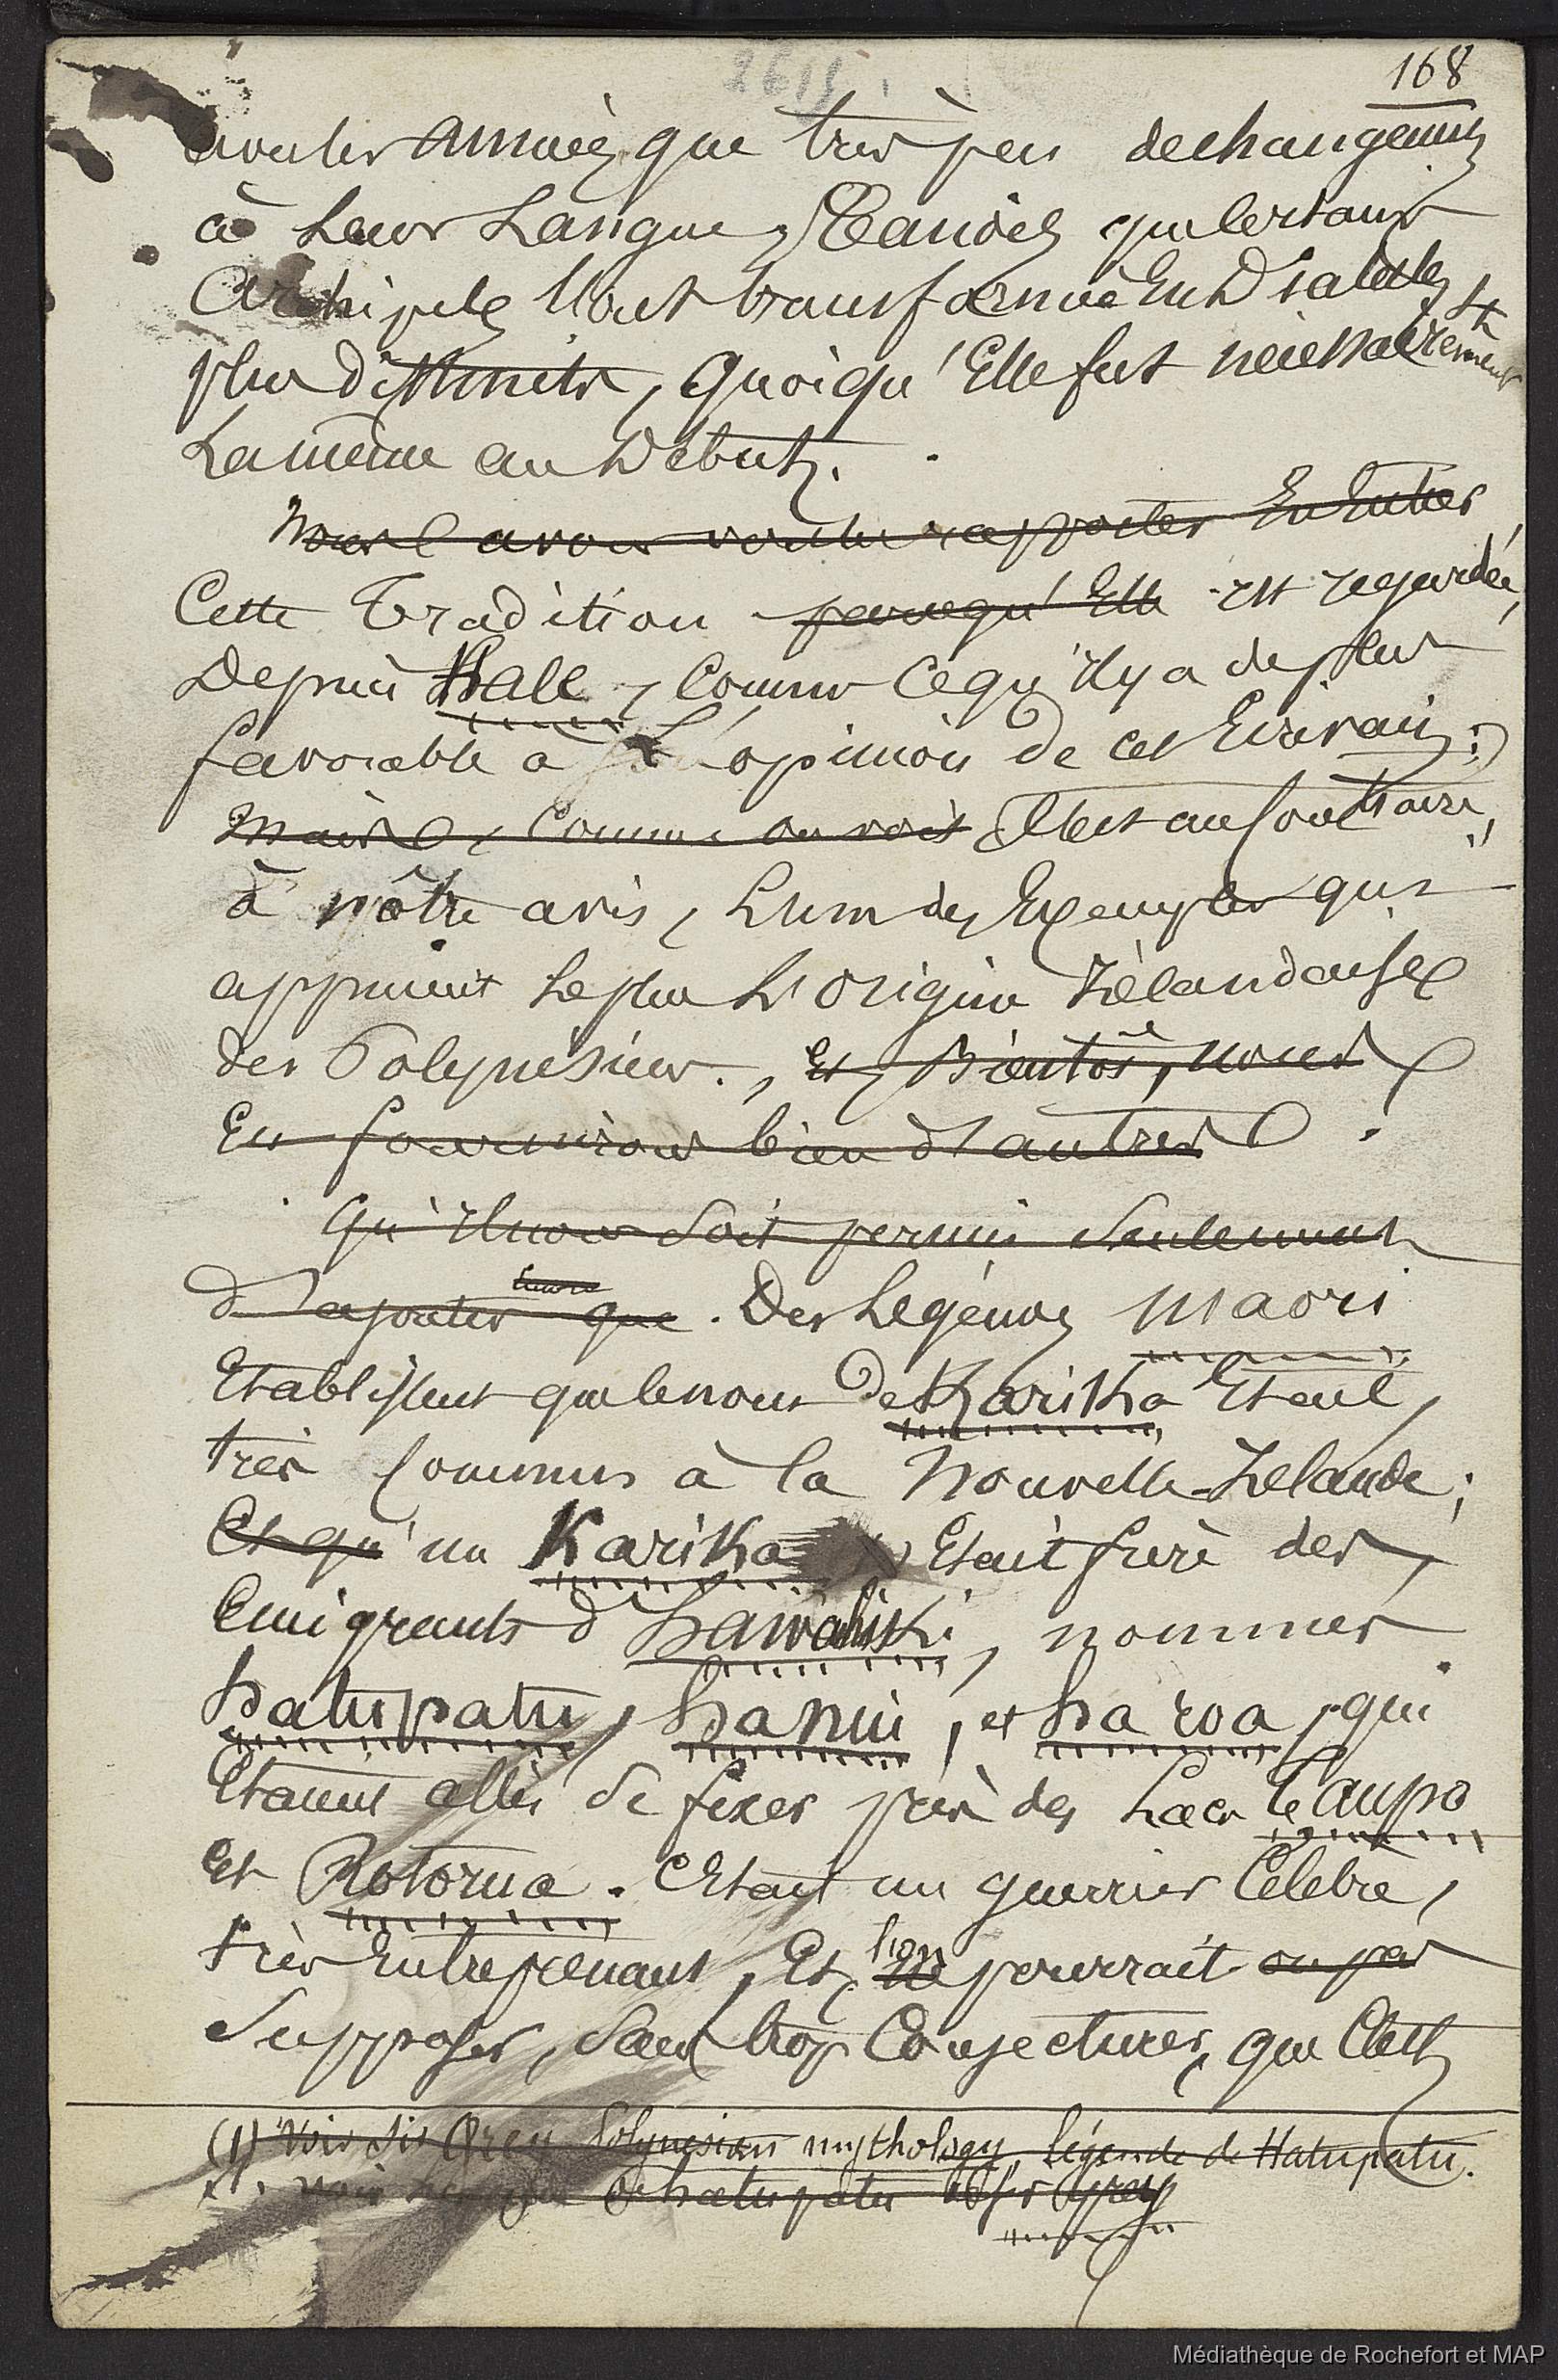 168
avouer amenés que très peu de changements
à leur Langue, Tandis que certains
Archipels l'ont transformée en Dialectes
plus distincts, quoiqu'Elle fut nécessairement
La même au Début.
Nous avons voulu rapporter En Entier
Cette Tradition parcequ'Elle est regardée,
Depuis Hale, comme ce qu'il y a de plus
favorable à l'opinion de cet Ecrivain;
Mais, comme on voit Elle est au contraire,
à nôtre avis, L'un des Exemples qui
appuient le plus L'origine Zélandaise
des Polynésiens., Et, Bientôt, nous
En fournirons bien d'autres.
Qu'il nous soit permis seulement
d'ajouter encore que. Des Légendes maori
Etablissent que le nom de Karika Etait
très commun à la Nouvelle-Zélande;
Et qu'un Karika Etait frère des
Emigrants d'hawahiki, nommés
hatupatu, hanui, et haroa, qui
Etaient allés se fixer près des Lacs Taupo
Et Rotorua. C'Etait un guerrier Célèbre,
très Entreprenant, Et, l'on ne pourrait
supposer, sans trop Conjecturer, que C'est
(1) Voir Sir Grey Polynesian mythology, légende de Hatupatu.
voir légende de hatupatu Sir Grey
Médiathèque de Rochefort et MAP